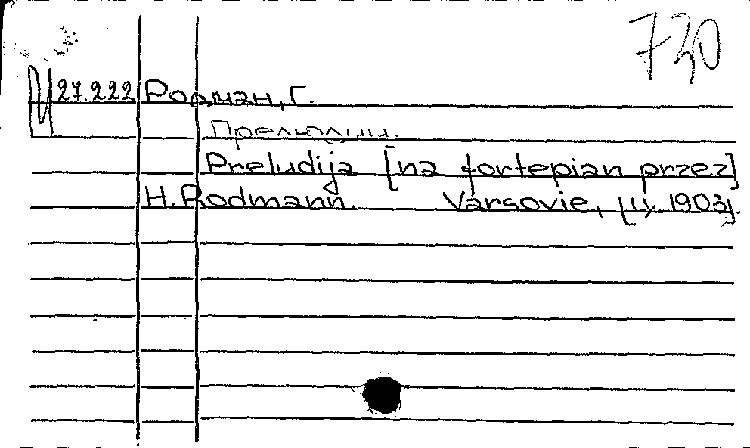 730
27.222 Родман, Г.
Прелюдии.
Preludija [na fortepian przez]
H. Rodmann. Varsovie, 1903].